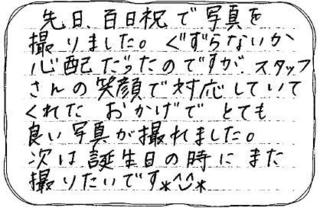 先日、百日祝で写真を
撮りました。ぐずらないか
心配だったのですが、スタッフ
さんの笑顔で対応していて
くれた おかげで とても
良い写真が撮れました。
次は誕生日の時にまた
撮りたいです*^^*